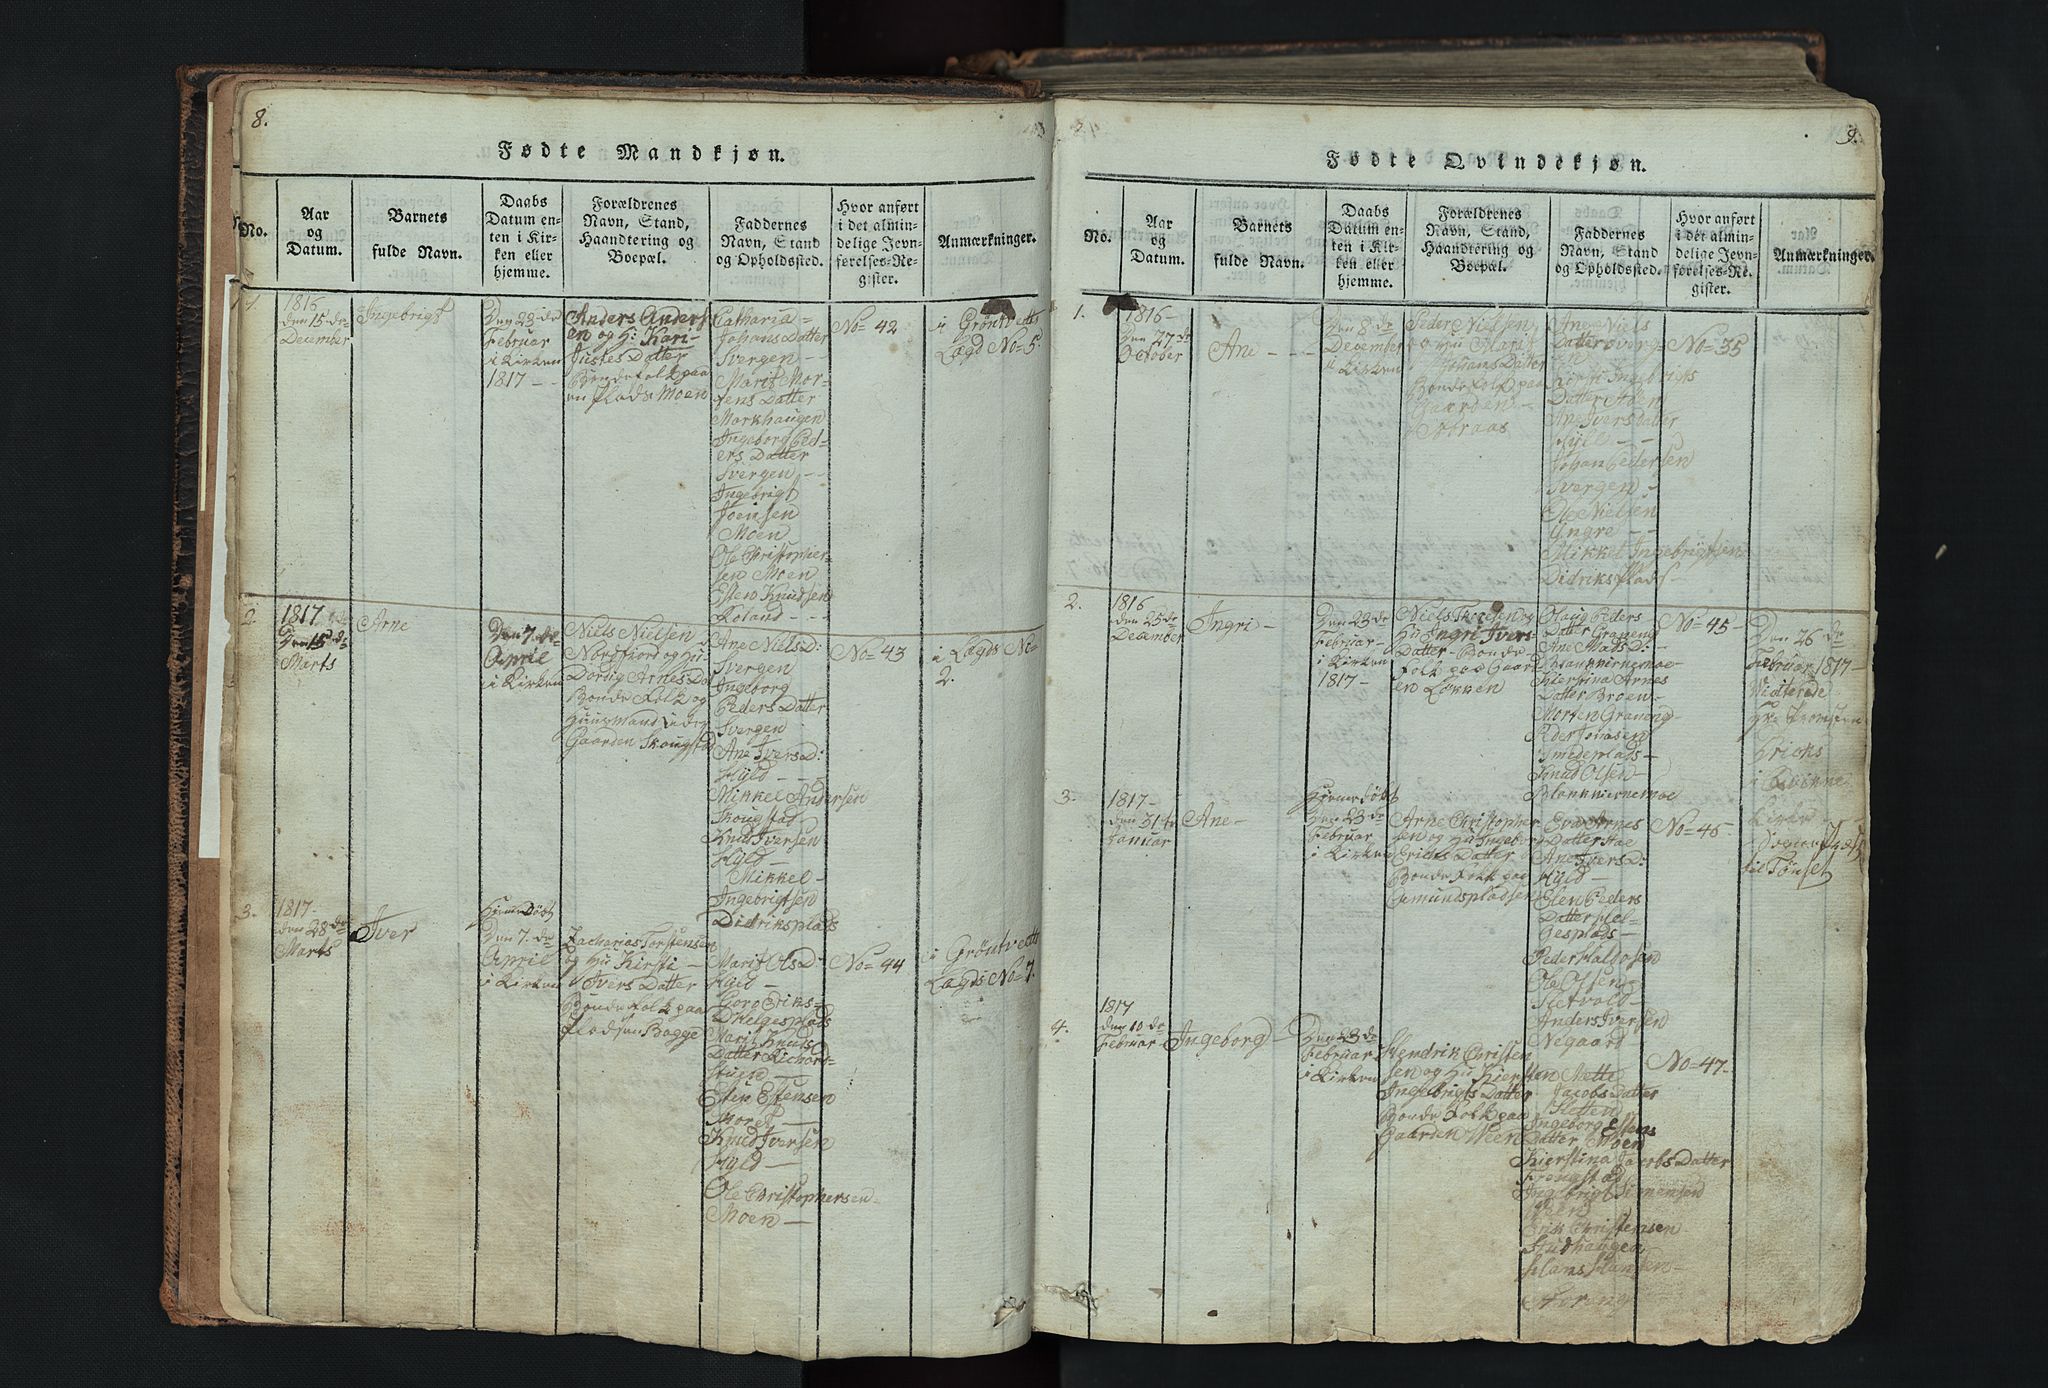 8.
Fødte Mandkjøn.
No.
Aar
og
Datum.
Barnets
fulde Navn.
Daabs
Datum en-
ten i Kir-
ken eller
hjemme.
Forældrenes
Navn, Stand,
Haandtering og
Boepæl.
Faddernes
Navn, Stand
og Opholdssted.
Hvor anført
i det almin-
delige Jevn-
førelses-Re-
gister.
Anmærkninger.
1.
1816
den 15-de
December
Ingebrigt
Den 23-de
Februar
i Kirken
1817 - -
Anders Anders
en og H: Kari-
Jistes Datter
Bøndefolk paa
en Plads Moen
Catharia =
Johans Datter
Svergen -
Marit Mor-
tens Datter
Morkhaugen
Ingeborg Ped-
ers Datter
Svergen - -
Ingebrigt
Joensen
Moen
Ole Christopher-
sen Moen
Esten Knudsen
Roland - -
No= 42
i Grøntvetts
Lægd No= 5.
2.
1817
Den 15 de
Marts
Arne
Den 7-de
April
i Kirken
Niels Nielsen
Nordfiord og Hu
Dordig Arnes Da
Bonde Folk og
Huusmand under
Gaarden Skougstad
Ane Niels D:
Svergen
Ingeborg
Peders Datter
Svergen
Ane Ivers D:
Hyld - -
Mikkel Andersen
Skougstad
Knud Iversen
Hyld -
Mikkel -
Ingebrigtsen
Didriksplads
No= 43
i Lægds No=
2.
3.
1817-
den 28 de
Marts
Iver
Hiemedøbt
Den 7. de
April
i Kirken
Zacharias Torstensen
og Hu Kirsti -
Ivers Datter
Bonde Folk paa
Pladsen Bagge
Marit Ols D:
Hyld -
Goro Eriks-
D Helgesplads
Marit Knuds
Datter Richors-
stuen -
Esten Estensen
Moret -
Knud Iversen
Hyld -
Ole Christophersen
Moen -
No= 44
i Grøntvetts
Lægds No= 7.
9.
Fødte Qvindekjøn.
No.
Aar
og
Datum.
Barnets
fulde Navn.
Daabs
Datum en-
ten i Kir-
ken eller
hjemme.
Forældrenes
Navn, Stand,
Haandtering og
Boepæl.
Faddernes
Navn, Stand
og Opholdssted.
Hvor anført
i det almin-
delige Jevn-
førelses-Re-
gister.
Anmærkninger.
1.
1816-
Den 27 de
October
Ane - - -
Den 8-de
December
i Kirken
Peder Nielsen
og Hu Marit
Johans Datter
Bonde Folk paa
Gaarden -
Straas
Ane Niels
Datter
Kirsti Ingebrigts
Datter
Ane Ivers datter
Hyld - -
Johan Pedersen
Svergen -
Ole Nielsen
Yngre - -
Mikkel Ingebrigtsen
Didriks Plads-
No= 35
2.
1816
den 25 de
December
Ingri -
Den 23 de
Februar -
i Kirken
1817 -
Hu Ingri Ivers-
Datter - Bonde
Folk paa Gaard
en Løkken
Olaug Peders
Datter Graneng
Ane Mads D:
Blankkirnemoe
Kierstina Arnes
Datter Broen-
Morten Graneng
Peder Jonasen
Smedeplads-
Knud Olsen -
Blankkirnemoe
No= 45-
Den 26 de
Februar 1817-
Kirke -
til Tønset
3.
1817-
den 31 te
Januar
Ane-
Hiemedøbt
Den 23-de
Februar
i Kirken
Arne Christopher
sen og Hu Ingeborg
Erichs Datter
Bonde Folk paa
Gemundspladsen
Eva Arnes
Datter
Ane Ivers D:
Hyld -
Elen Peders
Datter Hel-
gesplads-
Peder Haldosen
Ole Olsen-
Sletvold -
Anders Iversen
Negaard
No= 46-
4.
1817
den 10 de
Februar
Ingeborg -
Den 23 de
Februar
i Kirken
Hendrik Christen
sen og Hu Kiersten
Ingebrigts Datter
Bonde Folk paa
Gaarden Meer
Mette
Jacobs Datter
Sletten
Ingeborg Estens
Datter Moen
Kierstina Jacobs Datter
Frengstad
Ingebrigt Simensen
Erik Christensen
Studhaugen
Hans Hansen -
No= 47-